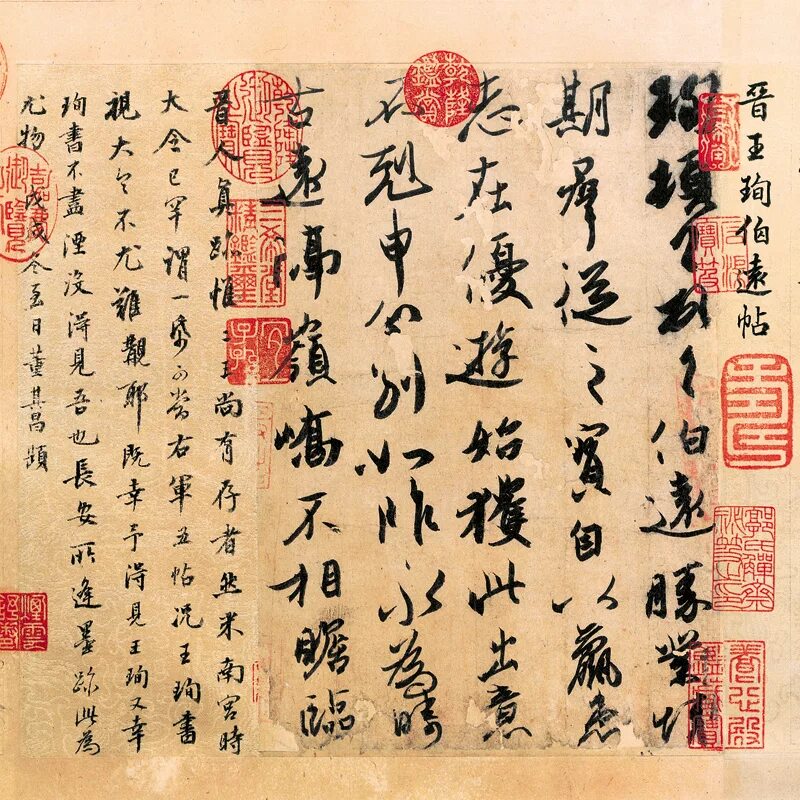 晉王珣伯遠帖
珣頓首頓首伯遠勝業情
期羣從之寶自以羸患
志在優遊始獲此出意
不剋申分別如昨永為疇
古遠隔嶺嶠不相瞻臨
三希堂精鑑璽
宜子孫
晉人真跡惟二王尚有存者然米南宮時
大令已罕謂一紙可當右軍五帖況王珣書
視大令不尤難覯耶既幸予得見王珣又幸
珣書不盡湮沒得見吾也長安所逢墨跡此為
尤物戊戌冬至日董其昌題